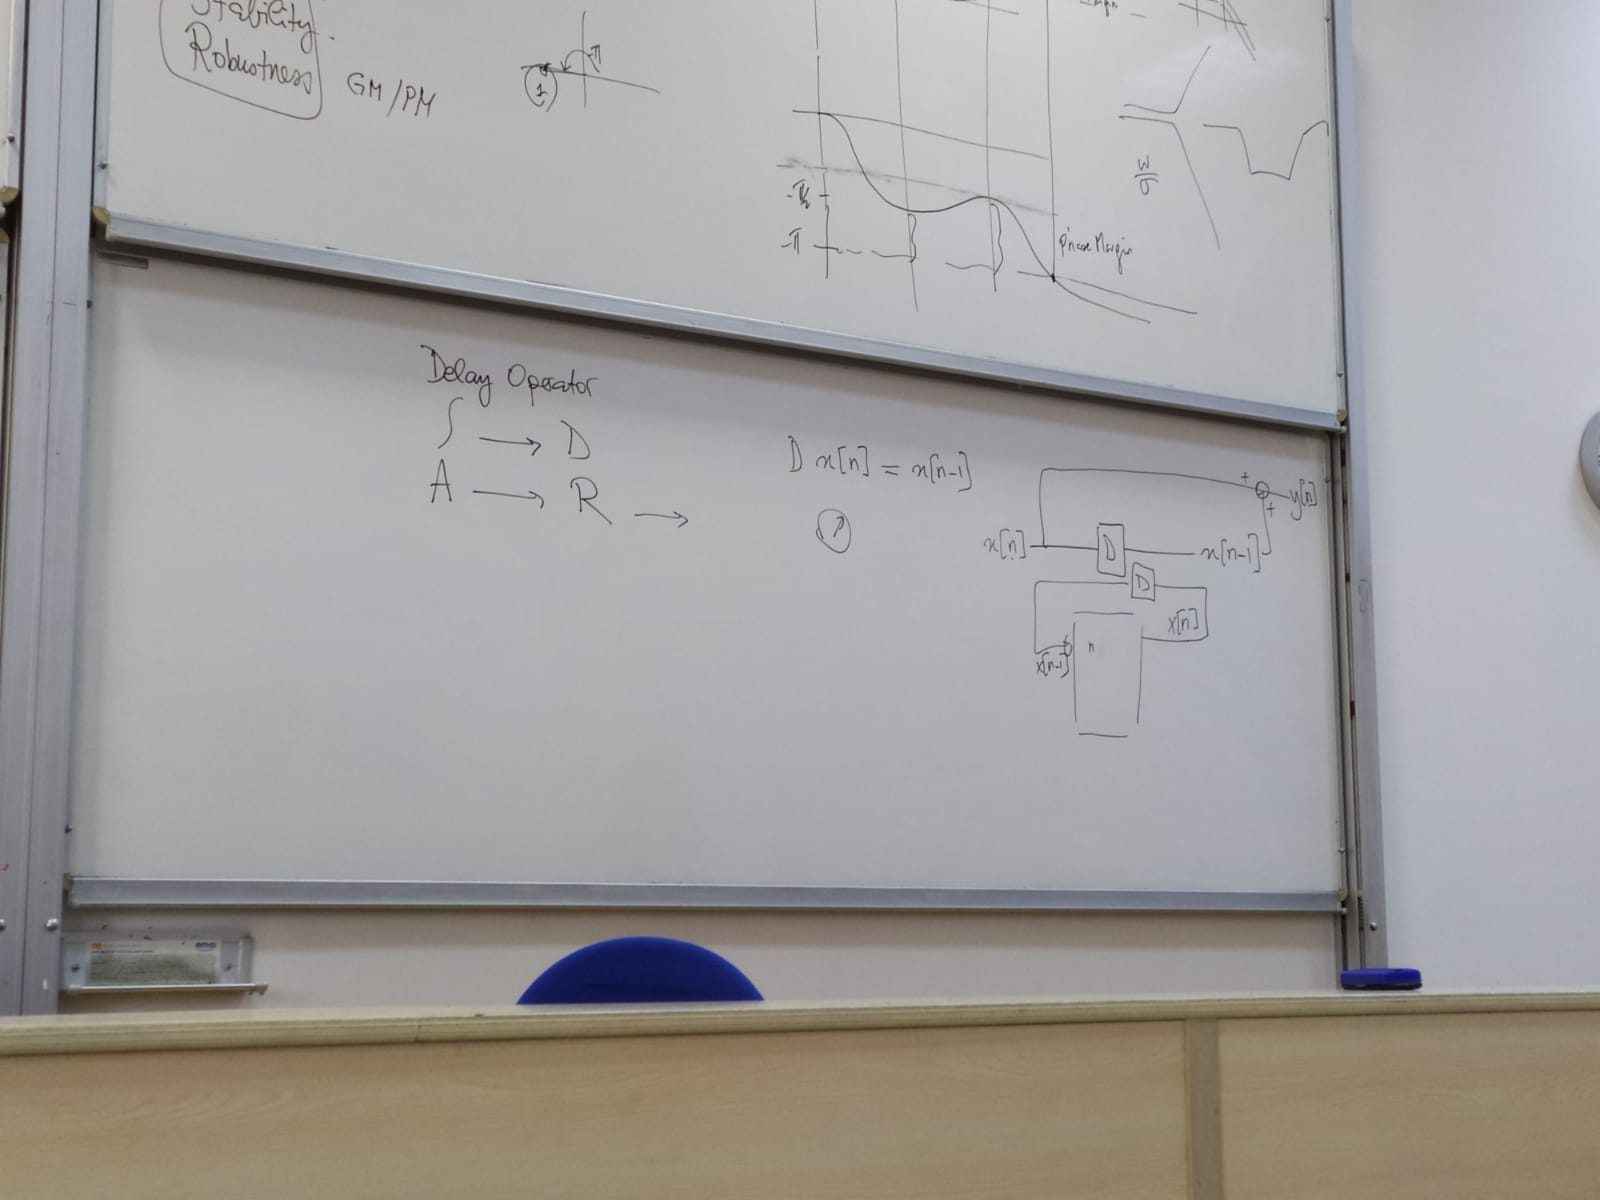 Stability.
Robustness
GM/PM
π
1
-π/2
-π
Phase Margin
W/σ
Delay Operator
∫ → D
A → R →
D x[n] = x[n-1]
+
y[n]
+
x[n]
D
x[n-1]
D
x[n]
x[n-1]
n